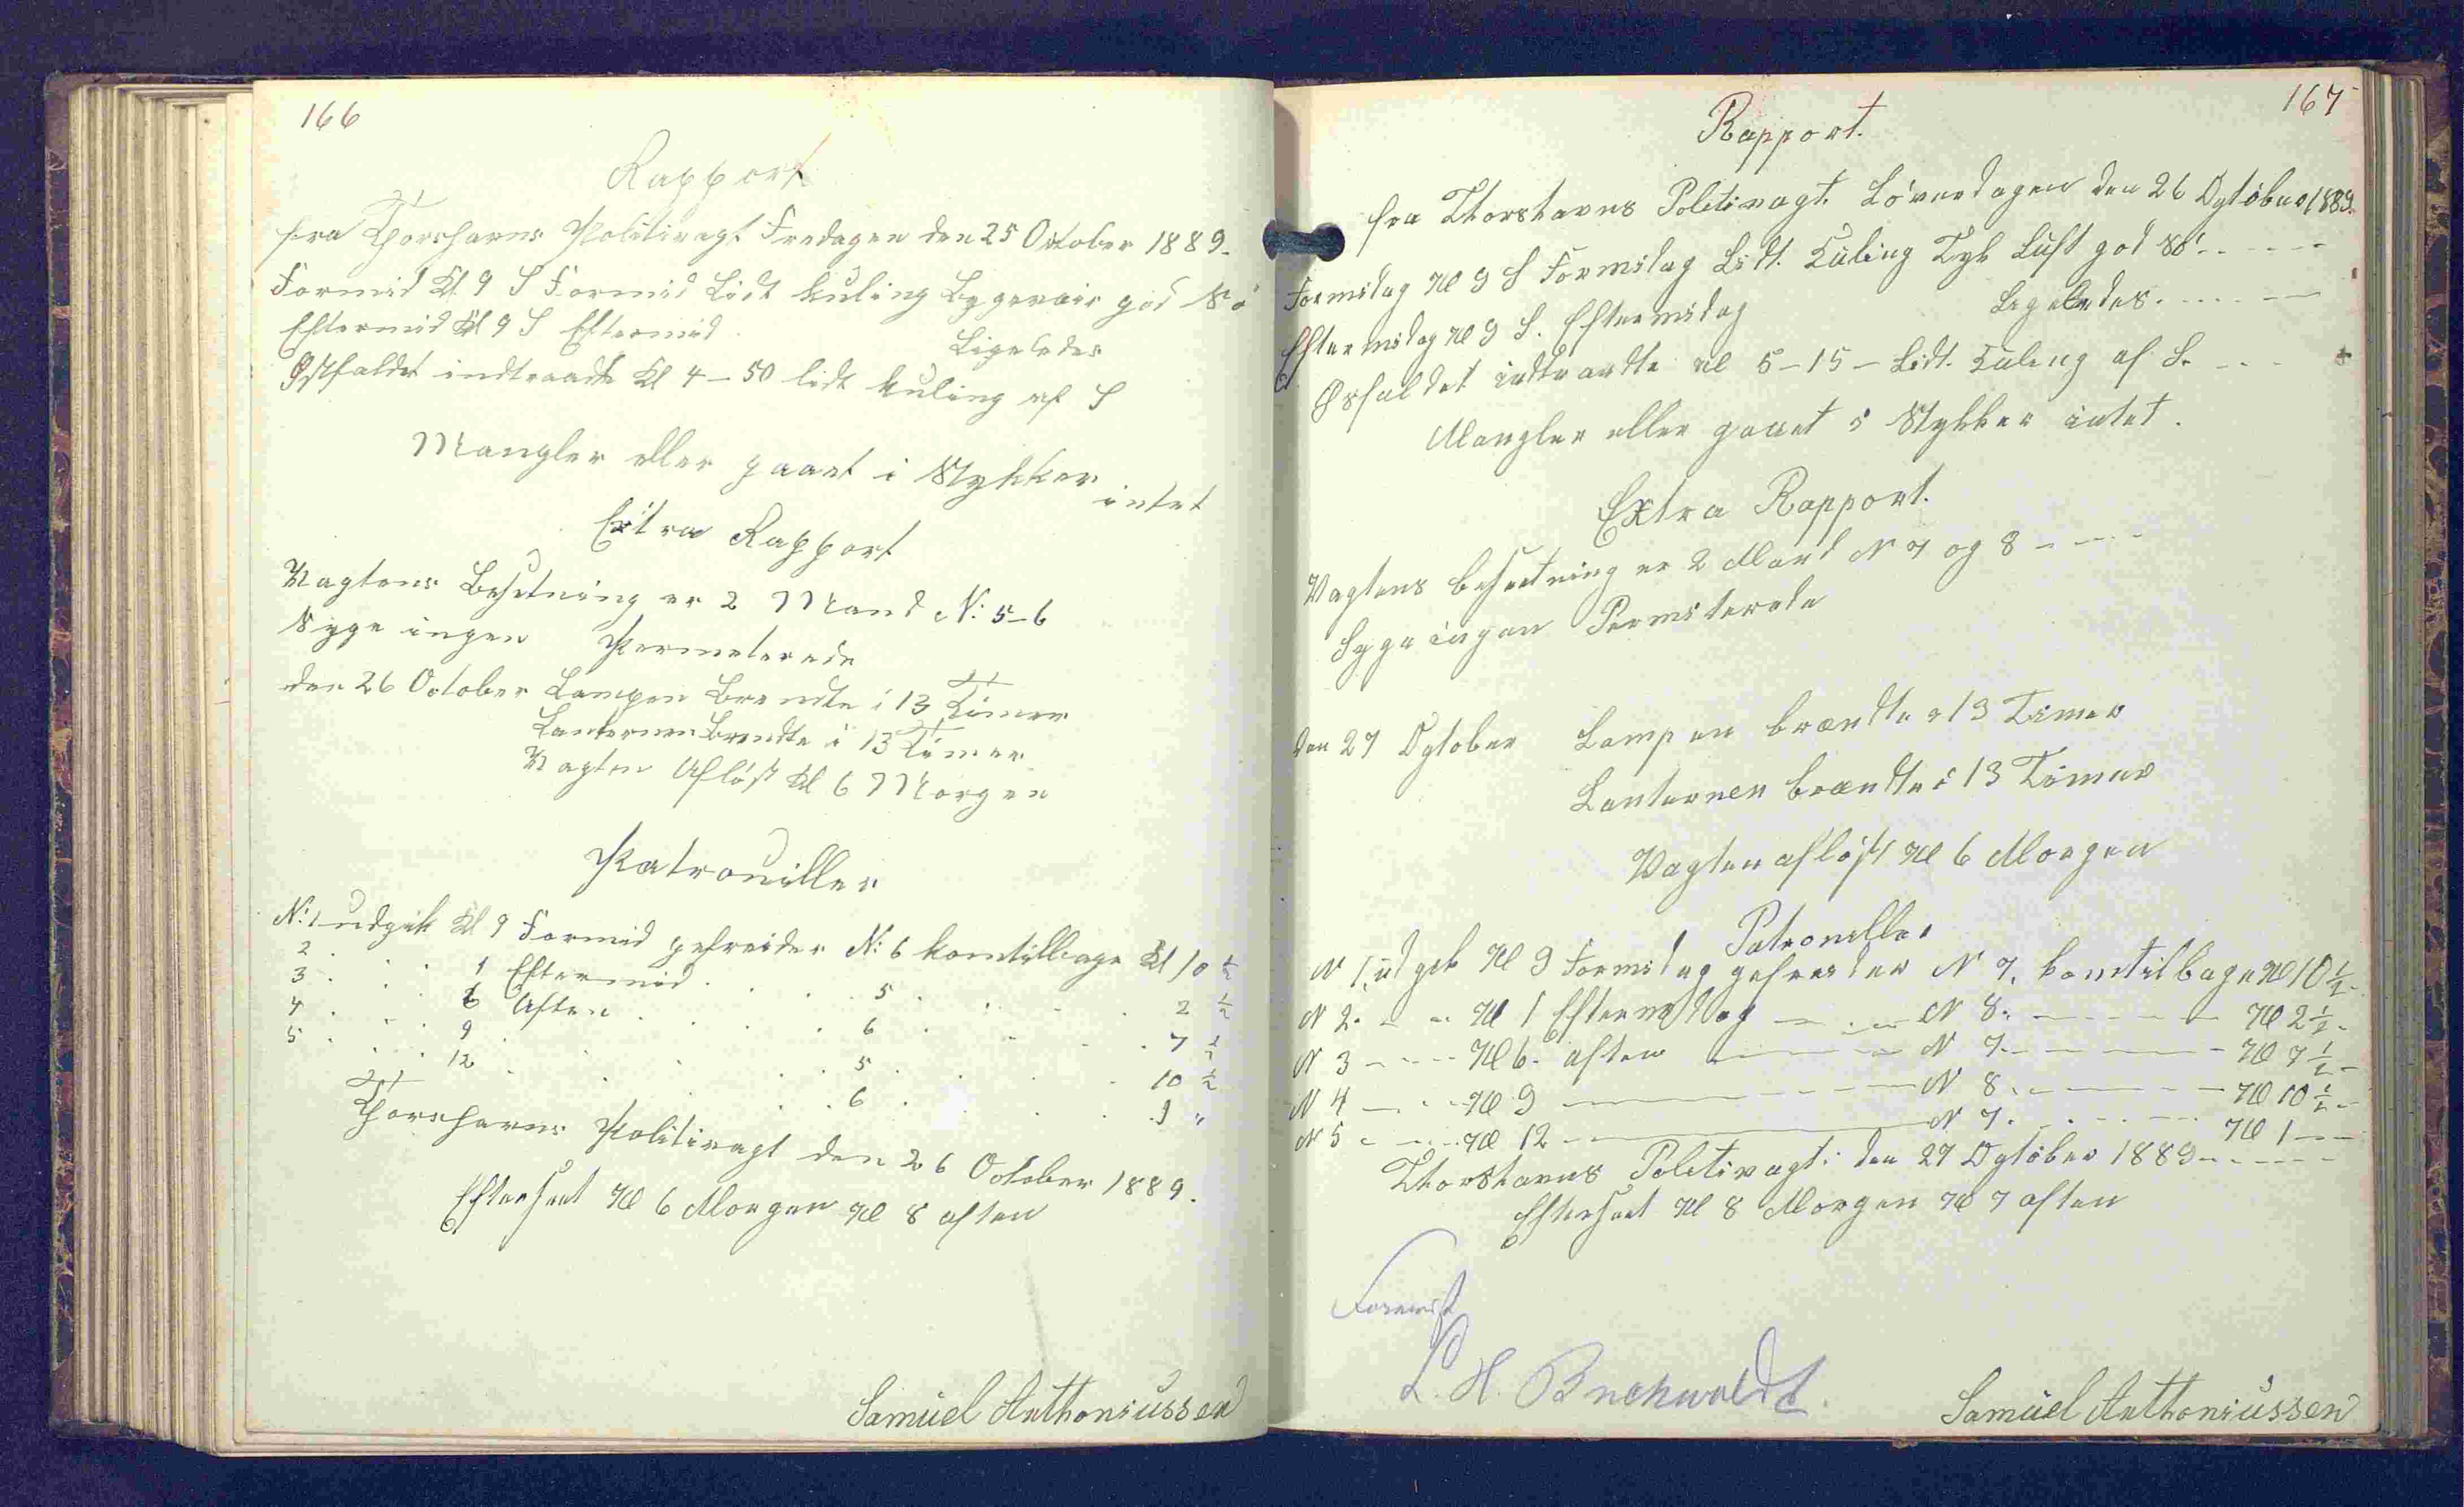 166
Rapport
fra Thorshavns Politivagt Fredagen den 25 October 1889.
Formid Kl 9 S Formid Lidt kuling Bygevair god Sö
Eftermid Kl 9 S Eftermid Ligeledes
Østfaldet indtraadte Kl 4-50 lidt kuling af S
Mangler eller gaaet i Stykker intet
Extra Rapport
Vagtens Besetning er 2 Mand N: 5-6
Syge ingen Permeterede
den 26 October Lampen Brendte i 13 Timer
Lanternen Brendte i 13 Timer
Vagten Afløst Kl 6 Morgen
Patrouiller
N: 1 udgik Kl 9 Formid gefreider N: 6 kom tilbage Kl 10 ½
2 . . . 1 Eftermid . . . 5 . . . 2 ½
3 . . . 6 Aften . . . 6 . . . 7 ½
4 . . . 9 . . . 5 . . . 10 ½
5 . . . 12 . . . 6 . . . 1 "
Thorshavns Politivagt den 26 October 1889.
Efterseet Kl 6 Morgen Kl 8 aften
Samuel Anthoniussen
167
Rapport.
fra Thorshavns Politivagt. Löverdagen den 26 Ogtober 1889.
Formidag Kl 9 S Formidag Lidt. Kuling Tyk Luft god Sö. - - - -
Eftermidag Kl 9 S. Eftermidag Ligeledes. - - - -
Øsfaldet indtraadte Kl 5-15 - Lidt. Kuling af S. - - -
Mangler eller gaaet i Stykker intet.
Extra Rapport.
Vagtens besætning er 2 Mand N 7 og 8 - - - -
Syge ingen Permiterede
den 27 Ogtober Lampen brændte i 13 Timer
Lanternen brændte i 13 Timer
Vagten afløst Kl 6 Morgen
Patrouiller
N 1, udgik Kl 9 Formidag gefreider N 7, kom tilbage Kl 10 ½ -
N 2. - - Kl 1 Eftermidag - - - N 8. - - - - Kl 2 ½ -
N 3 - - - Kl 6. aften - - - N 7. - - - - Kl 7 ½ -
N 4 - - - Kl 9 - - - N 8. - - - - Kl 10 ½ -
N 5 - - - Kl 12 - - - N 7. - - - - Kl 1 - -
Thorshavns Politivagt: den 27 Ogtober 1889 - - - -
Efterseet Kl 8 Morgen Kl 7 aften
Forevist
L. H. Buchwaldt.
Samuel Anthoniussen